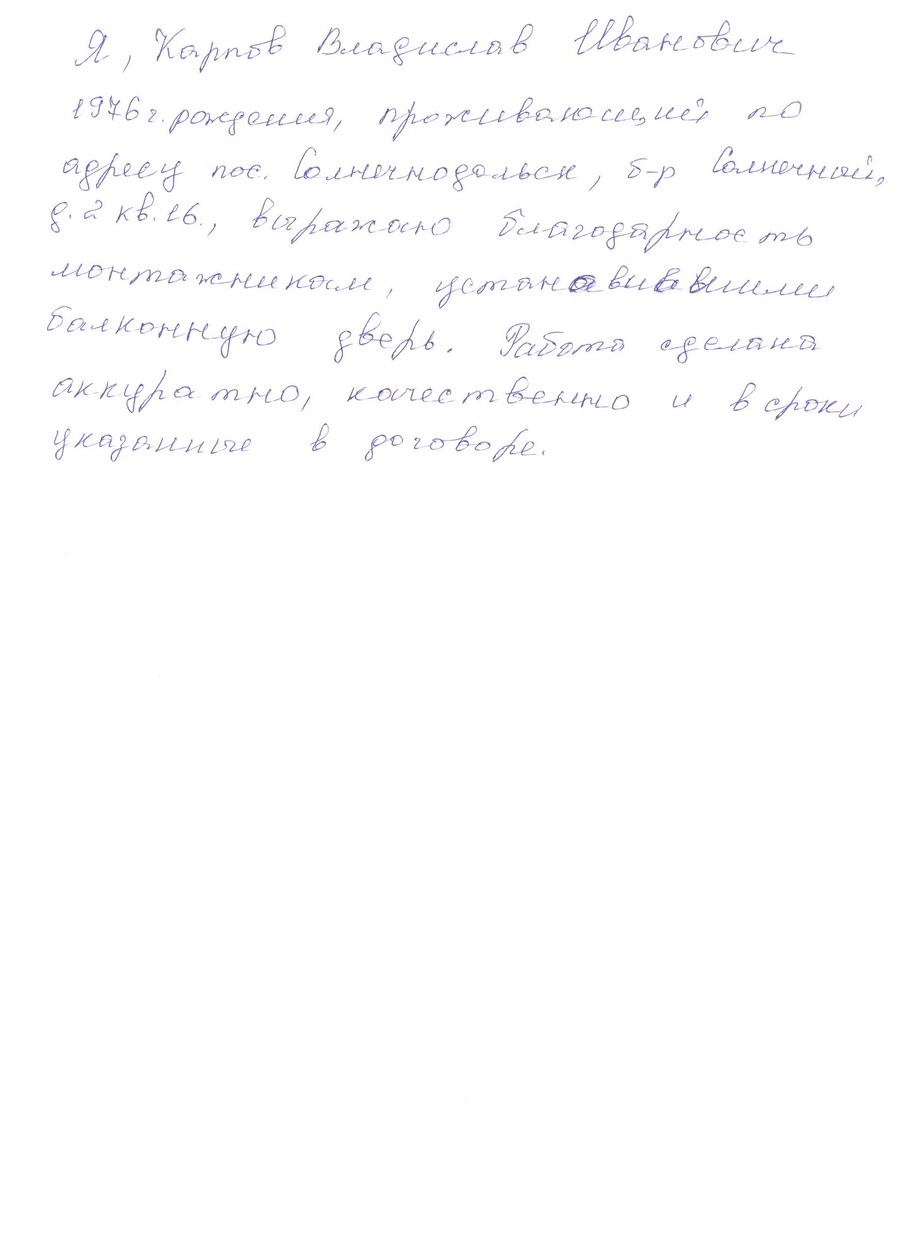 Я, Карпов Владислав Иванович
1976г. рождения, проживающий по
адресу пос. Солнечнодольск, б-р Солнечной,
д. 2 кв. 16., выражаю благодарность
монтажникам, установившими
балконную дверь. Работа сделана
аккуратно, качественно и в сроки
указанные в договоре.